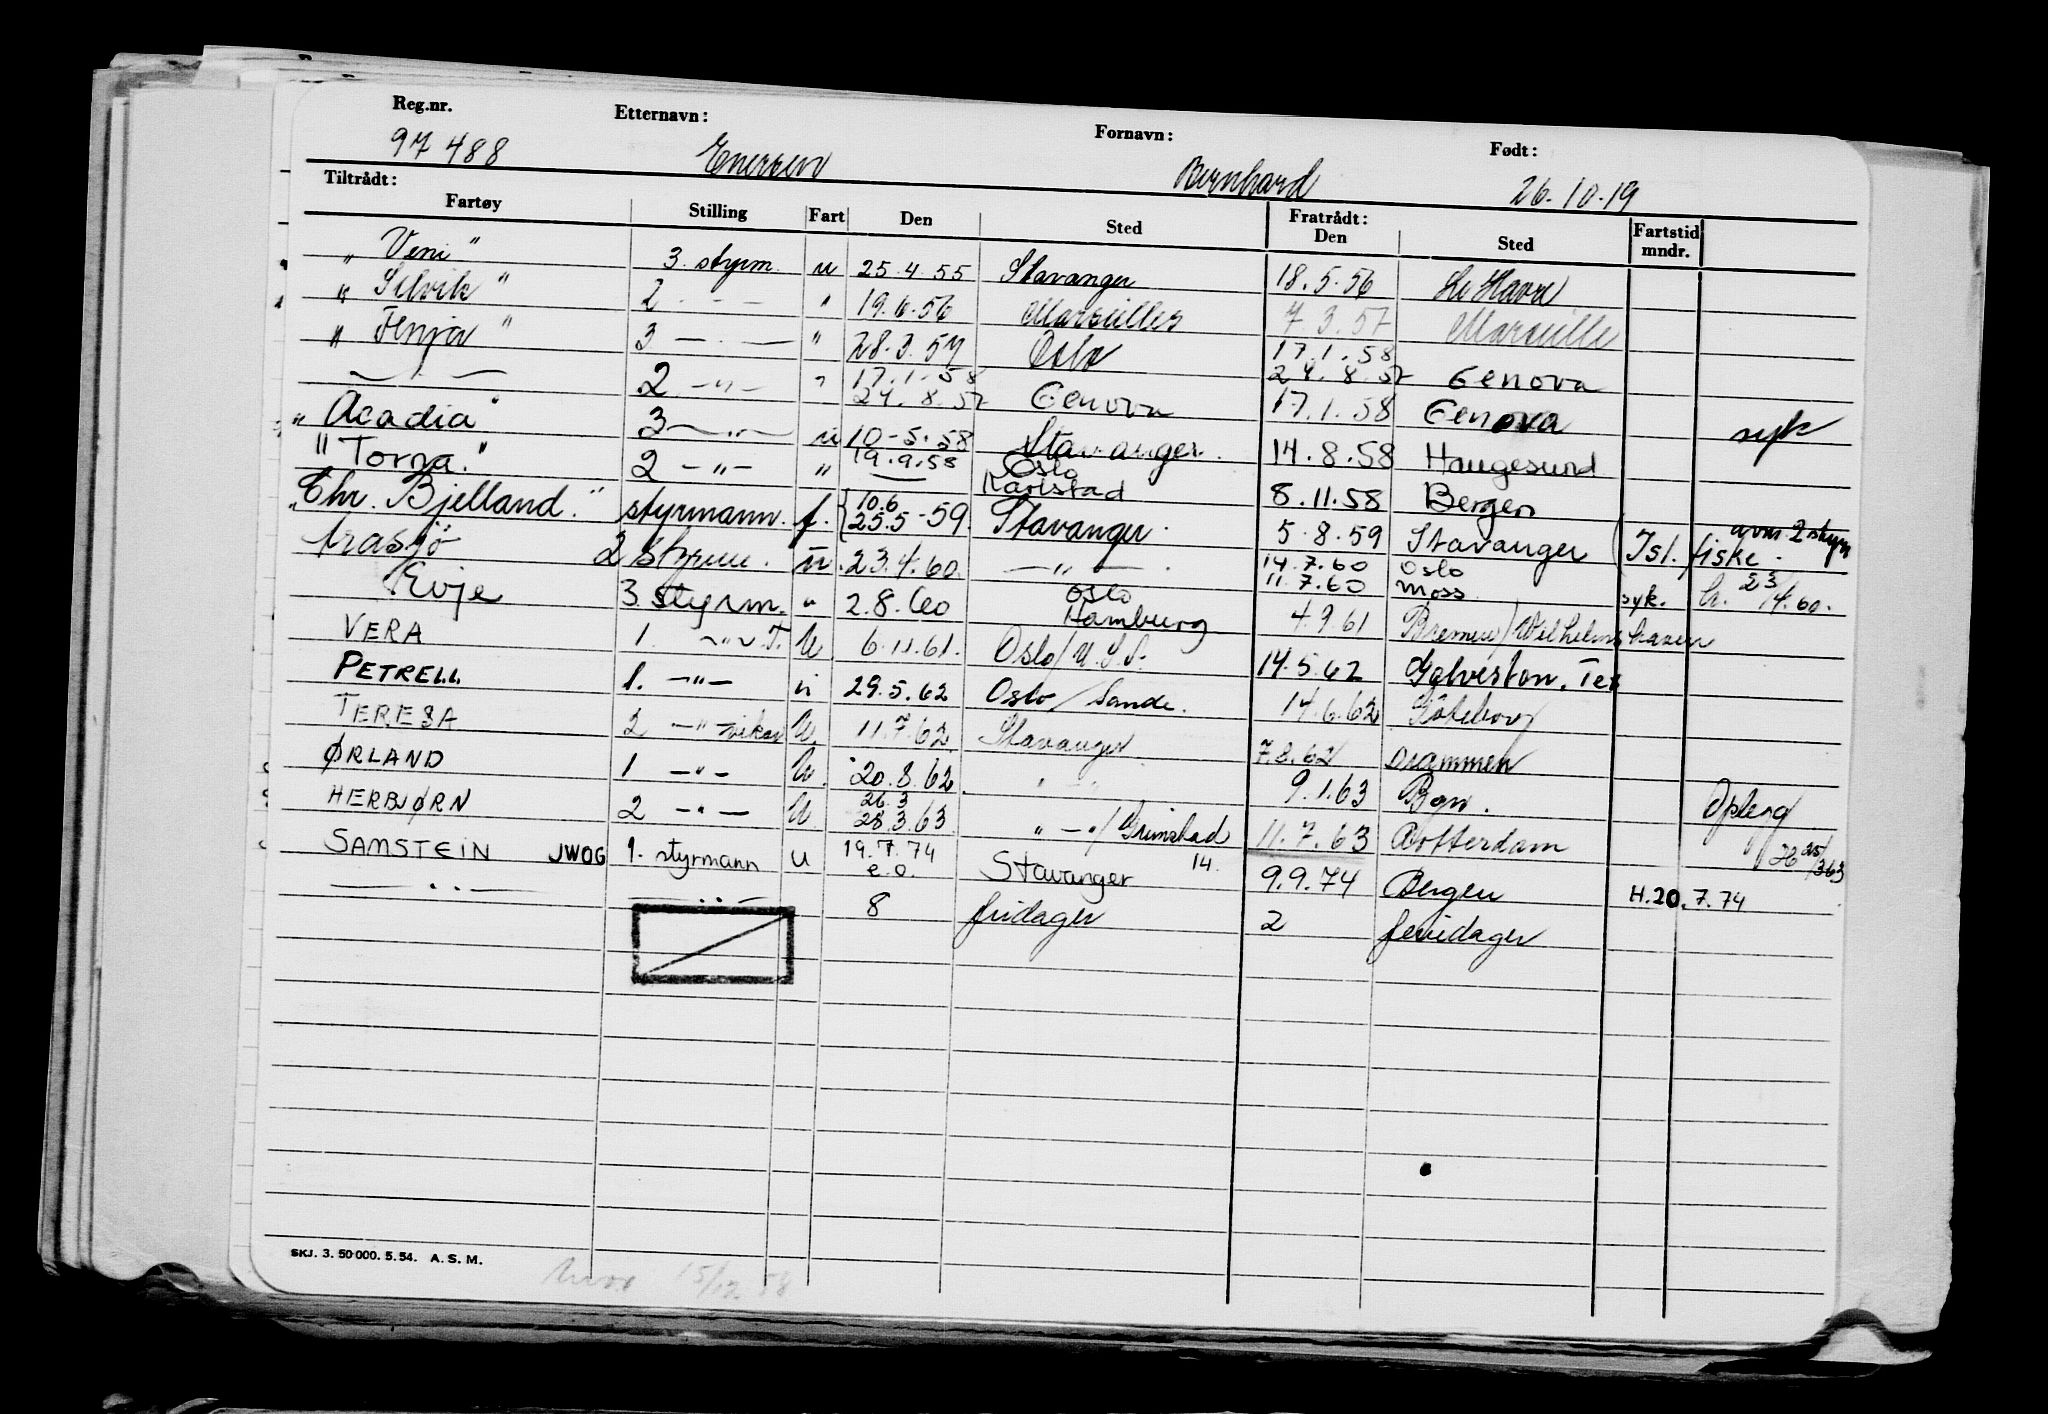 Reg.nr. Etternavn: Fornavn: Født:
97 488 Enersen Bernhard 26.10.19
Tiltrådt: Fratrådt:
Fartøy Stilling Fart Den Sted Den Sted Fartstid mndr.
"Veni" 3. styrm. u 25.4.55 Stavanger 18.5.56 Le Havre
"Selvik" 2 - - - " 19.6.56 Marseilles 7.3.57 Marseille
"Fenja" 3 - . - " 28.3.57 Oslo 17.1.58 24.8.57 Genova
- " - 2 - " - " 17.1.58 24.8.57 Genova 17.1.58 Genova syk
"Acadia" 3 - " - u 10-5.58 Stavanger. 14.8.58 Haugesund
"Torna." 2 - " - " 19.9.58 Oslo Karlstad 8.11.58 Bergen
"Chr. Bjelland." styrmann. f. { 10.6 25.5 - 59. Stavanger. 5.8.59 Stavanger ( Isl. fiske. avm. 2 styrm
2 styrm. u. 23.4.60. - " - . 14.7.60 11.7.60 Oslo Moss syk. h. 23/4.60.
Evje 3 styrm. " 2.8.60 Oslo Hamburg 4.9.61 Bremen/Wilhelmshaven
VERA 1. - " - T. U 6.11.61. Oslo/U.S.A. 14.5.62 Galveston. Tex
PETRELL 1. - " - u 29.5.62 Oslo/Sande. 14.6.62 Göteborg
TERESA 2 - " - vikar U. 11.7.62. Stavanger 7.8.62 Drammen
ØRLAND 1 - " - U. 20.8.62 " - " 9.1.63 Bgn. Opplegg
HERBJØRN 2 - " - U. 26.3 28.3.63 " - "/Grimstad 11.7.63 Rotterdam H 25/3 63
SAMSTEIN JWOG 1. styrmann u 19.7.74 e.o. Stavanger 14. 9.9.74 Bergen H.20.7.74
- . . - - . . - 8 fridager 2 feriedager
SKJ. 3. 50 000. 5. 54. A. S. M.
15/12 58